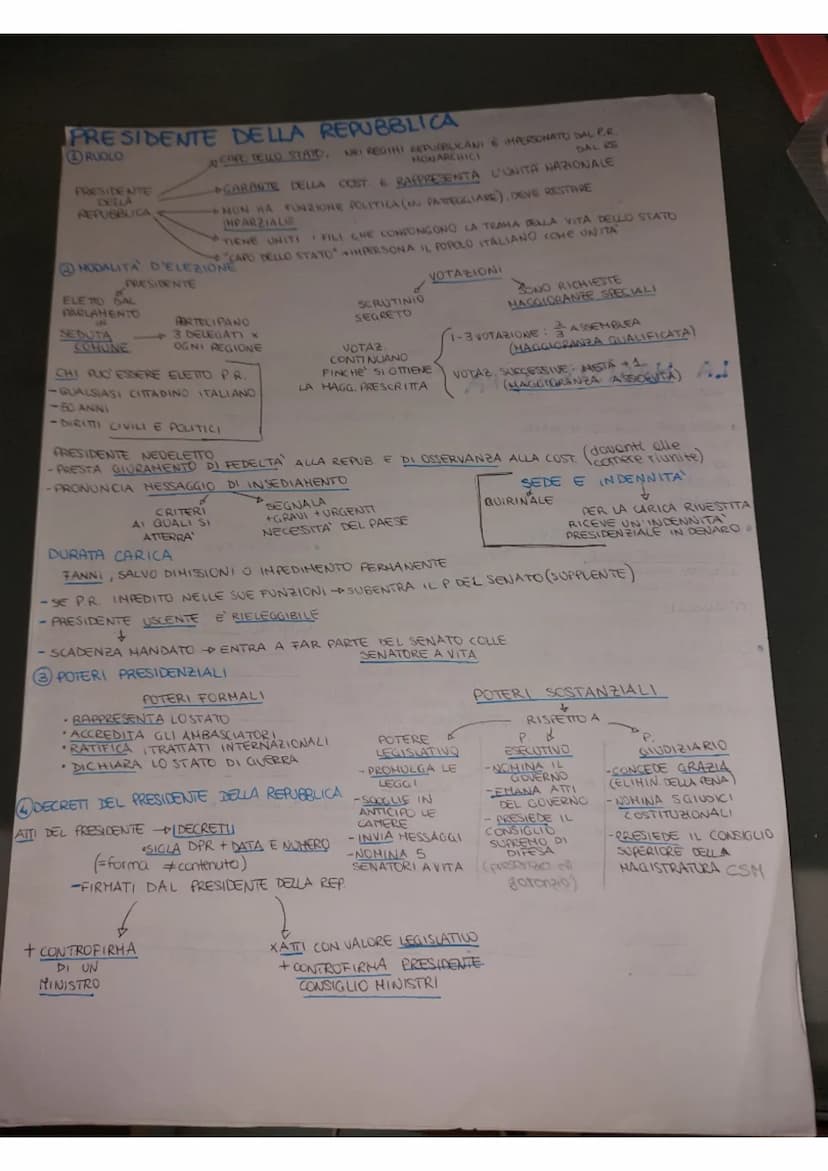 PRESIDENTE DELLA REPUBBLICA
① RUOLO
PRESIDENTE
DELLA
REPUBBLICA
CAPO DELLO STATO, NEI REGIMI REPUBBLICANI È IMPERSONATO DAL P.R.
MONARCHICI DAL RE
GARANTE DELLA COST. E RAPPRESENTA L'UNITÀ NAZIONALE
NON HA FUNZIONE POLITICA DEVE RESTARE
IMPARZIALE
TIENE UNITI I FILI CHE COMPONGONO LA TRAMA DELLA VITA DELLO STATO
"CAPO DELLO STATO" → IMPERSONA IL POPOLO ITALIANO COME UNITÀ
② MODALITÀ D'ELEZIONE
PRESIDENTE
ELETTO DAL
PARLAMENTO
IN
SEDUTA
COMUNE
→ PARTECIPANO
3 DELEGATI x
OGNI REGIONE
VOTAZIONI
SCRUTINIO
SEGRETO
SONO RICHIESTE
MAGGIORANZE SPECIALI
VOTAZ.
CONTINUANO
FINCHÉ SI OTTIENE
LA MAGG. PRESCRITTA
1-3 VOTAZIONE: 2/3 ASSEMBLEA
(MAGGIORANZA QUALIFICATA)
VOTAZ. SUCCESSIVE - METÀ + 1
(MAGGIORANZA ASSOLUTA)
CHI PUÒ ESSERE ELETTO P.R.
- QUALSIASI CITTADINO ITALIANO
- 50 ANNI
- DIRITTI CIVILI E POLITICI
PRESIDENTE NEOELETTO
- PRESTA GIURAMENTO DI FEDELTÀ ALLA REPUB E DI OSSERVANZA ALLA COST. (davanti alle
camere riunite)
- PRONUNCIA MESSAGGIO DI INSEDIAMENTO
CRITERI
AI QUALI SI
ATTERRÀ
SEGNALA
+ GRAVI + URGENTI
NECESSITÀ DEL PAESE
SEDE E INDENNITÀ
QUIRINALE
PER LA CARICA RIVESTITA
RICEVE UN'INDENNITÀ
PRESIDENZIALE IN DENARO
DURATA CARICA
7 ANNI, SALVO DIMISSIONI O IMPEDIMENTO PERMANENTE
- SE P.R. IMPEDITO NELLE SUE FUNZIONI → SUBENTRA IL P DEL SENATO (SUPPLENTE)
- PRESIDENTE USCENTE È RIELEGGIBILE
- SCADENZA MANDATO → ENTRA A FAR PARTE DEL SENATO COLLE
SENATORE A VITA
③ POTERI PRESIDENZIALI
POTERI FORMALI
• RAPPRESENTA LO STATO
• ACCREDITA GLI AMBASCIATORI
• RATIFICA I TRATTATI INTERNAZIONALI
• DICHIARA LO STATO DI GUERRA
POTERI SOSTANZIALI
RISPETTO A
POTERE
LEGISLATIVO
- PROMULGA LE
LEGGI
- SCOGLIE IN
ANTICIPO LE
CAMERE
- INVIA MESSAGGI
- NOMINA 5
SENATORI A VITA
P.
ESECUTIVO
- NOMINA IL
GOVERNO
- EMANA ATTI
DEL GOVERNO
- PRESIEDE IL
CONSIGLIO
SUPREMO DI
DIFESA
P.
GIUDIZIARIO
- CONCEDE GRAZIA
(ELIMIN. DELLA PENA)
- NOMINA 5 GIUDICI
COSTITUZIONALI
- PRESIEDE IL CONSIGLIO
SUPERIORE DELLA
MAGISTRATURA CSM
④ DECRETI DEL PRESIDENTE DELLA REPUBBLICA
ATTI DEL PRESIDENTE → I DECRETI
• SIGLA DPR + DATA E NUMERO
(= forma ≠ contenuto)
- FIRMATI DAL PRESIDENTE DELLA REP.
+ CONTROFIRMA
DI UN
MINISTRO
x ATTI CON VALORE LEGISLATIVO
+ CONTROFIRMA PRESIDENTE
CONSIGLIO MINISTRI